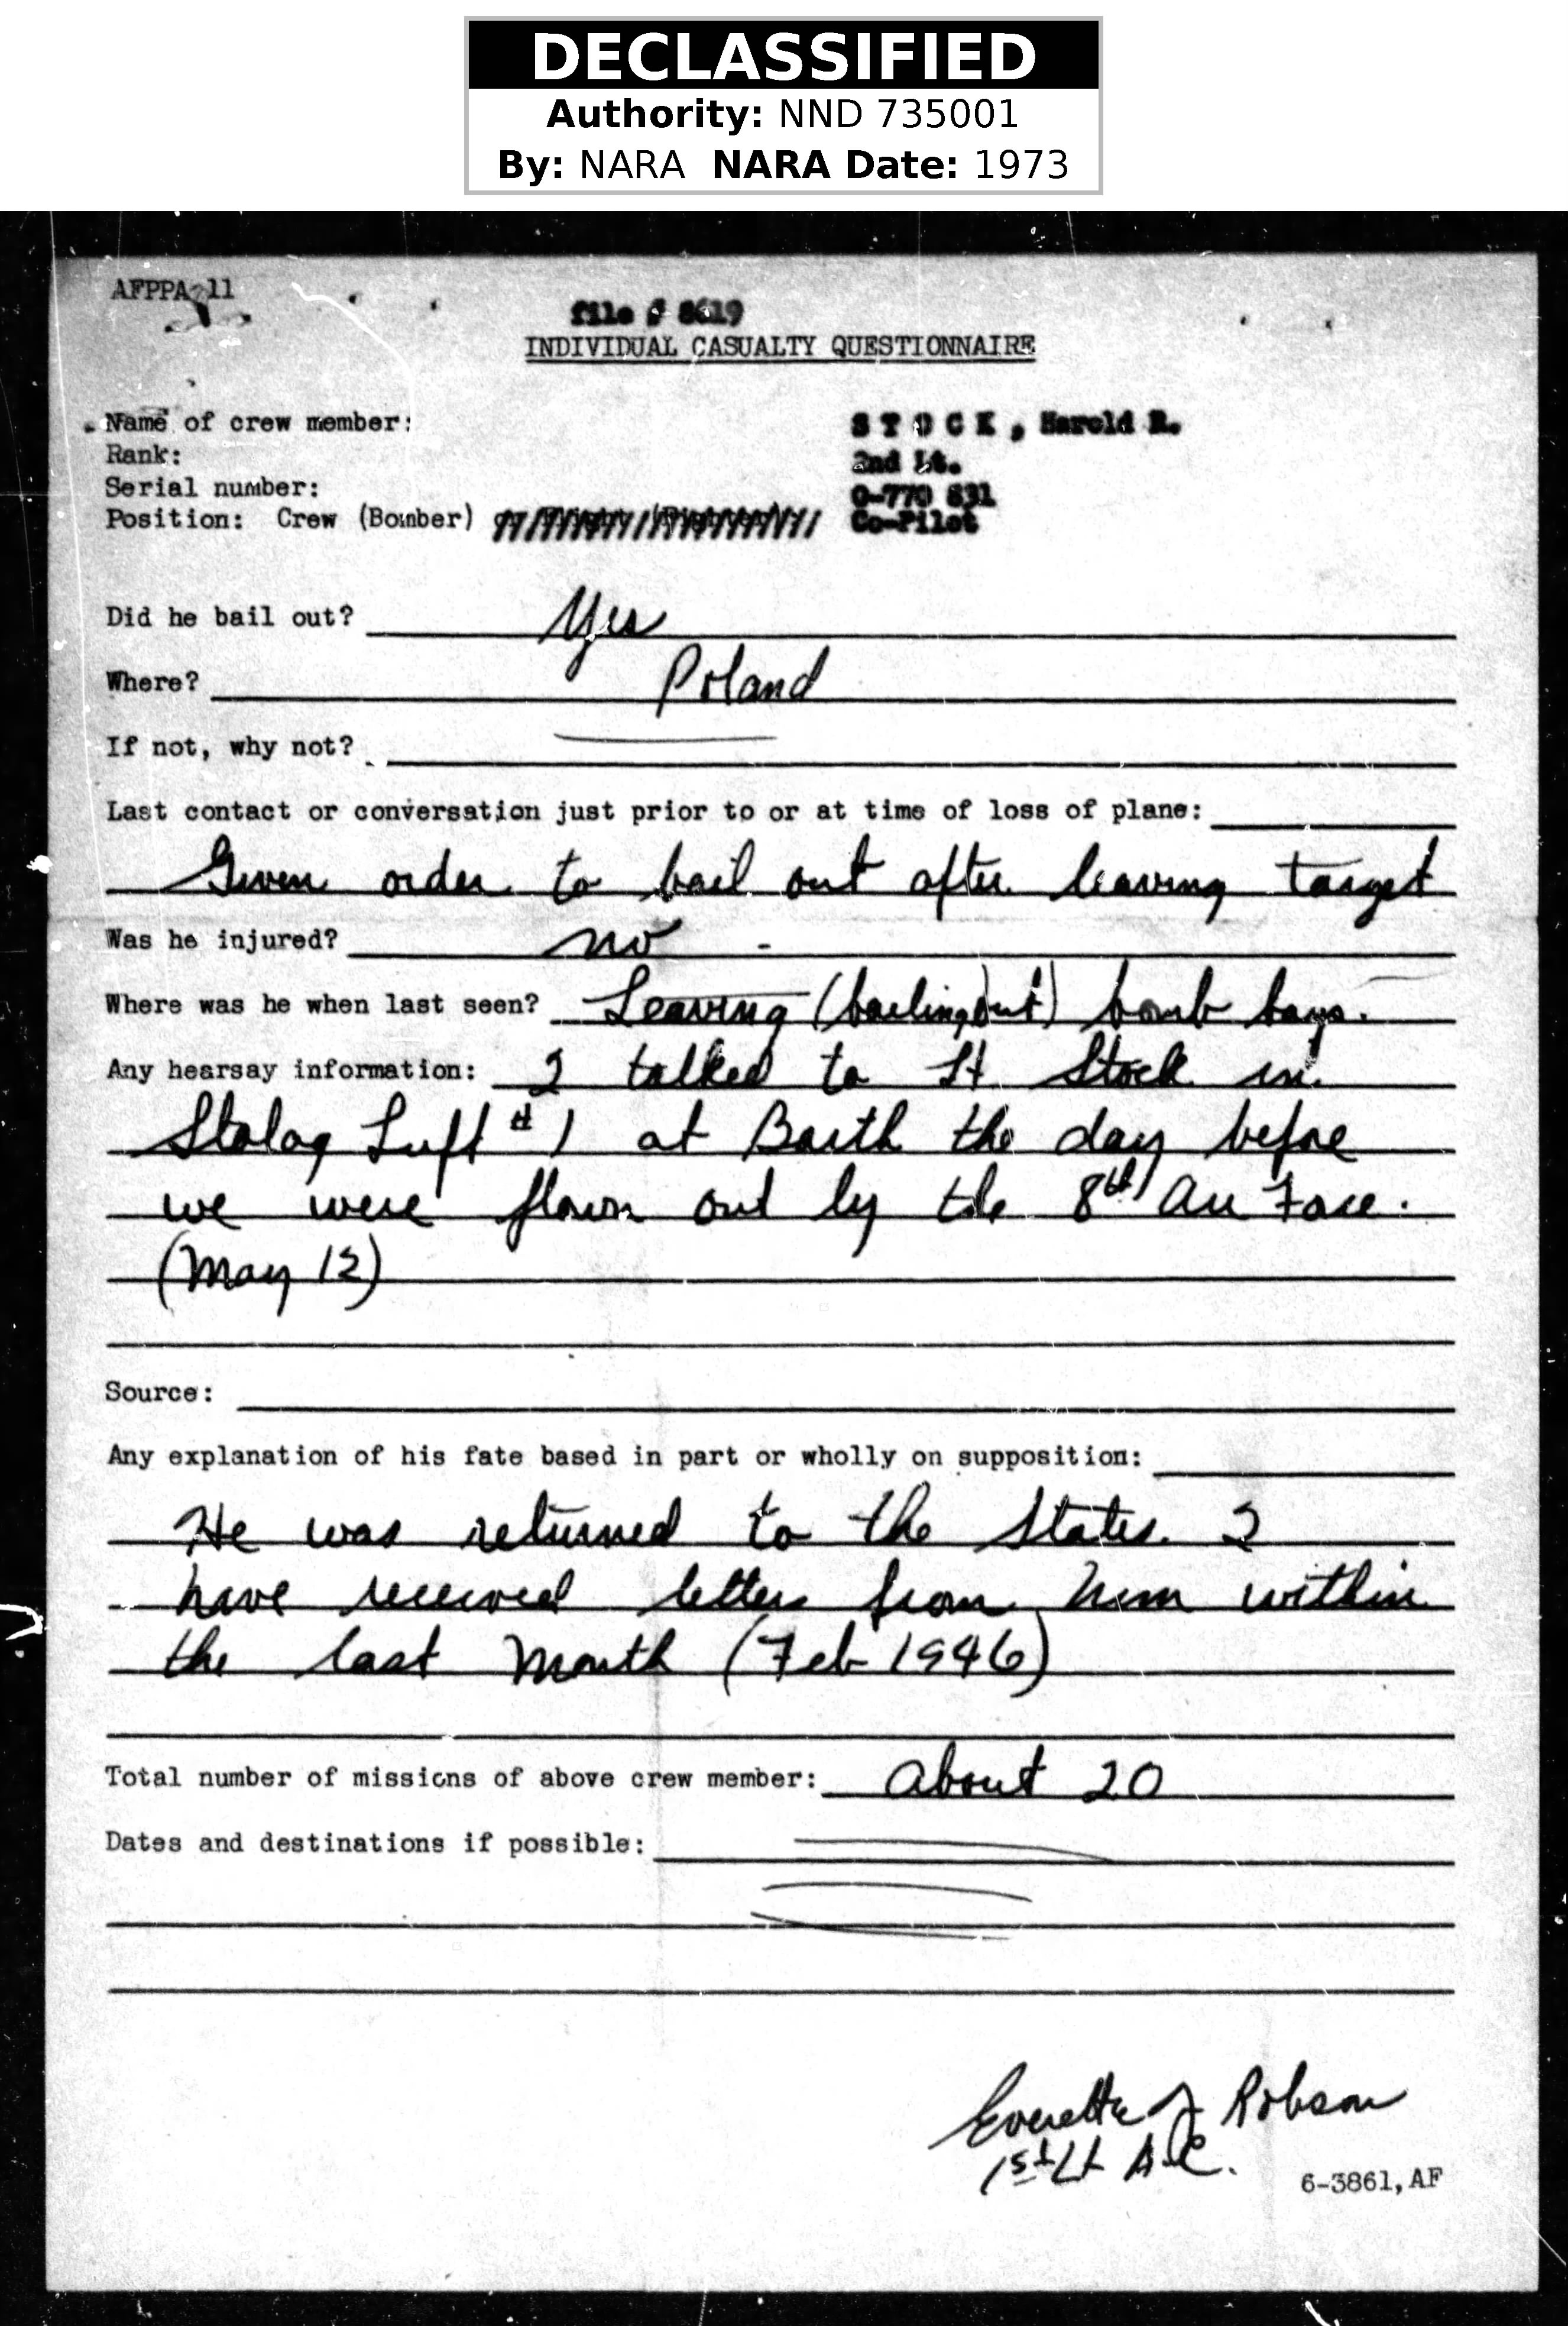 DECLASSIFIED
Authority: NND 735001
By: NARA NARA Date: 1973
AFPPA-11
file # 8619
INDIVIDUAL CASUALTY QUESTIONNAIRE
Name of crew member: S T O C K , Harold R.
Rank: 2nd Lt.
Serial number: O-770 831
Position: Crew (Bomber) Co-Pilot
Did he bail out? Yes
Where? Poland
If not, why not?
Last contact or conversation just prior to or at time of loss of plane:
Given order to bail out after leaving target
Was he injured? no -
Where was he when last seen? Leaving (bailing out) bomb bays.
Any hearsay information: I talked to Lt Stock in
Stalag Luft # 1 at Barth the day before
we were flown out by the 8th Air Force.
(May 12)
Source:
Any explanation of his fate based in part or wholly on supposition:
He was returned to the States. I
have received letters from him within
the last month (Feb 1946)
Total number of missions of above crew member: about 20
Dates and destinations if possible:
Everette J Robson
1st Lt A.C.
6-3861, AF